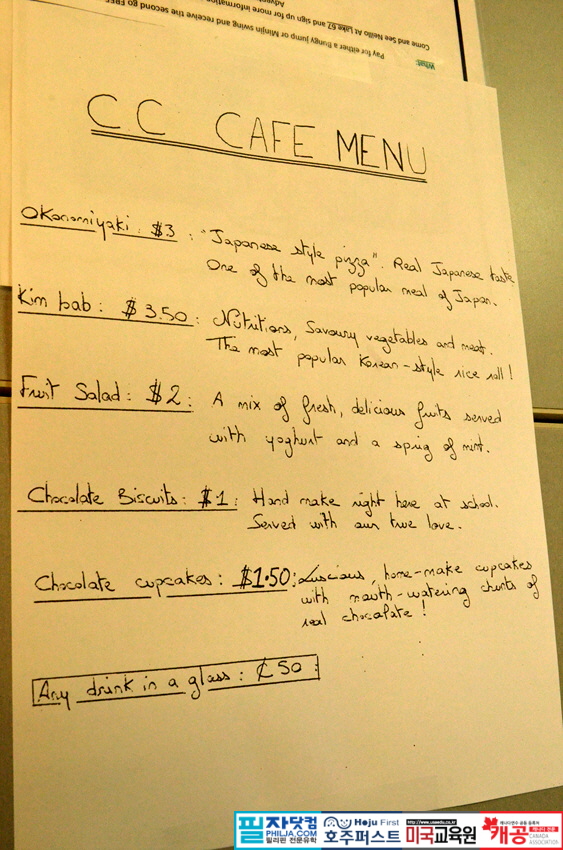 What:
Pay for either a Bungy jump or Minjin swing and receive the second go FREE
Come and See Neillo At Lake 67 and sign up for more information
C.C CAFE MENU
Okonomiyaki: $3 : "Japanese style pizza". Real Japanese taste
One of the most popular meal of Japan.
Kim bab: $3.50 : Nutritions, Savoury vegetables and meat.
The most popular Korean-style rice roll!
Fruit Salad: $2 : A mix of fresh, delicious fruits served
with yoghurt and a sprig of mint.
Chocolate Biscuits: $1: Hand make right here at school.
Served with our true love.
Chocolate cupcakes: $1.50: Luscious, home-make cupcakes
with mouth-watering chunts of
real chocalate!
Any drink in a glass: ₵50:
필자닷컴
PHILJA.COM
필리핀 전문유학
Hoju First
호주퍼스트
http://www.usaedu.co.kr
미국교육원
캐나다연수 공동 출족자
캐공
CANADA
ASSOCIATION